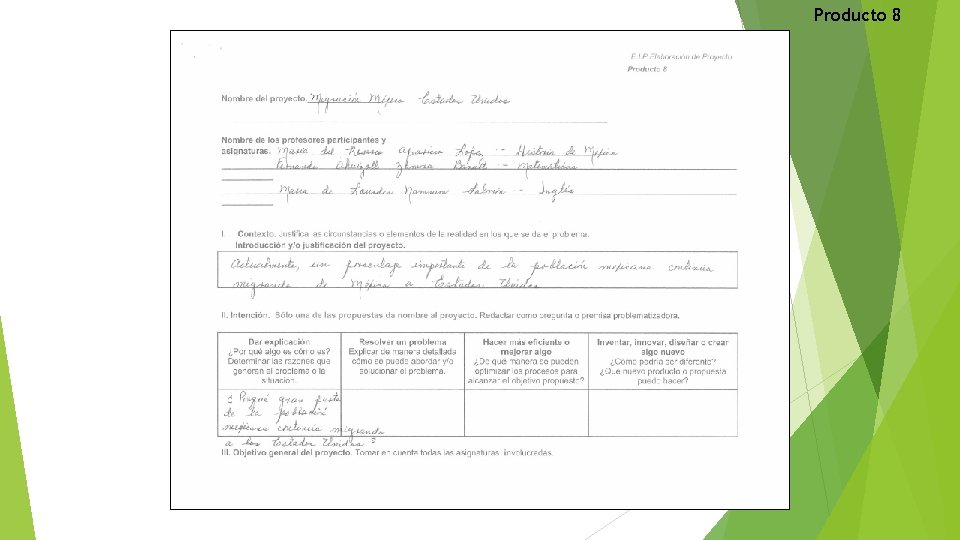 Producto 8
E.I.P. Elaboración de Proyecto
Producto 8
Nombre del proyecto. Migración México Estados Unidos
Nombre de los profesores participantes y
asignaturas. María del - Historia de México
Fernando - Matemáticas
María de Lourdes - Inglés
I. Contexto. Justifica las circunstancias o elementos de la realidad en los que se da el problema.
Introducción y/o justificación del proyecto.
Actualmente, un porcentaje importante de la población mexicana continua
migrando de México a Estados Unidos
II. Intención. Sólo una de las propuestas da nombre al proyecto. Redactar como pregunta o premisa problematizadora.
Dar explicación
¿Por qué algo es cómo es?
Determinar las razones que
generan el problema o la
situación.
Resolver un problema
Explicar de manera detallada
cómo se puede abordar y/o
solucionar el problema.
Hacer más eficiente o
mejorar algo
¿De qué manera se pueden
optimizar los procesos para
alcanzar el objetivo propuesto?
Inventar, innovar, diseñar o crear
algo nuevo
¿Cómo podría ser diferente?
¿Qué nuevo producto o propuesta
puedo hacer?
¿ Porqué gran parte
de la población
mexicana continua migrando
a los Estados Unidos ?
III. Objetivo general del proyecto. Tomar en cuenta todas las asignaturas involucradas.